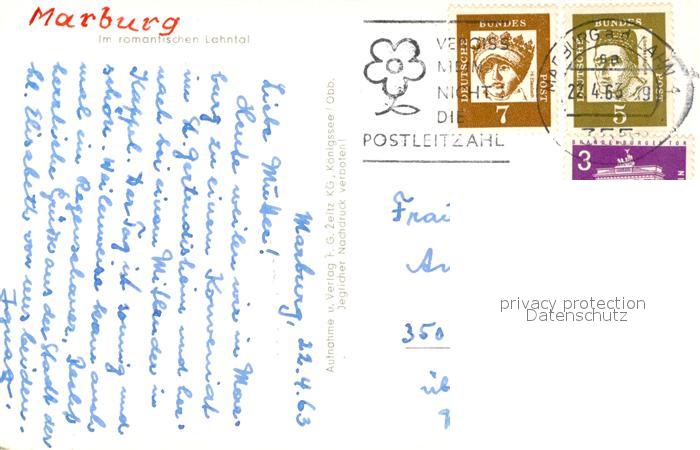 Marburg
Im romantischen Lahntal
Marburg, 22.4.63
Liebe Mutter!
Heute weilen wir in Mar-
burg zu einem Konveniat
im St. gertrudisheim und her-
nach bei einem Mitbruder in
Kappel. Der Tag ist sonnig und
schön. Weilenweise kam auch
mal ein Regenschauer. Recht
herzliche Grüße aus der Stadt der
hl. Elisabeth von uns beiden.
Ignaz.
Aufnahme u. Verlag F. G. Zeitz KG., Königssee/Obb.
Jeglicher Nachdruck verboten!
VERGISS
MEIN
NICHT
DIE
POSTLEITZAHL
DEUTSCHE
BUNDES
POST
7
DEUTSCHE
BUNDES
POST
5
22.4.63
355
3
BRANDENBURGER TOR
350
privacy protection
Datenschutz